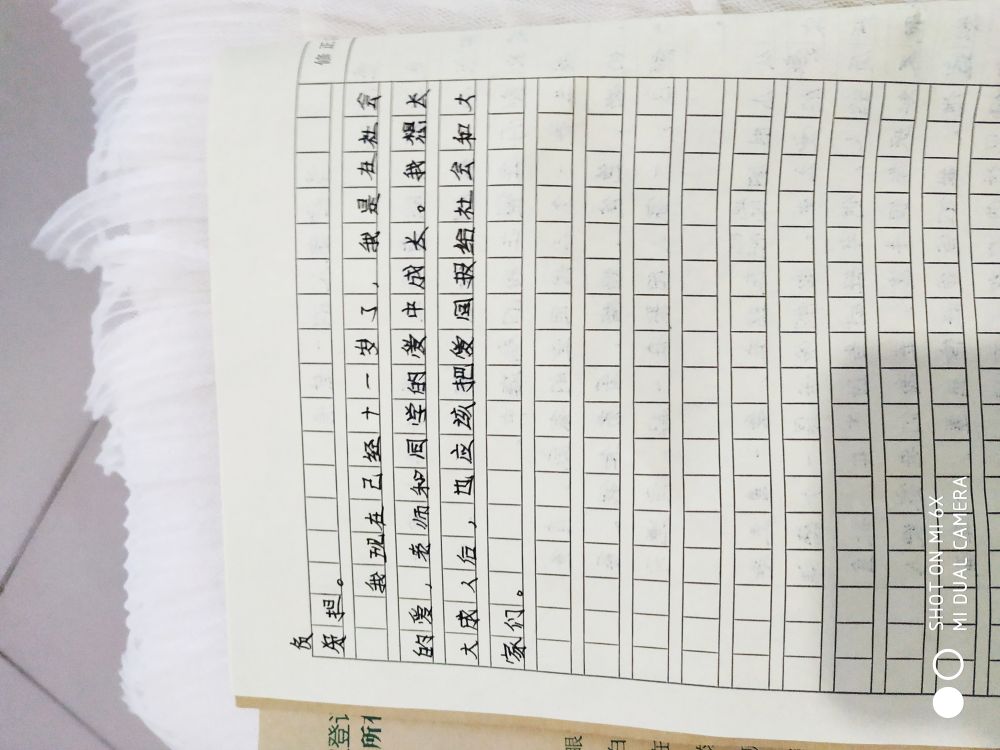 修正
负
担。
我现在已经十一岁了，我是在社会
的爱，老师和同学的爱中成长。我想长
大成人后，也应该把爱回报给社会和大
家们。
登
所
眼
白
在
SHOT ON MI 6X
MI DUAL CAMERA